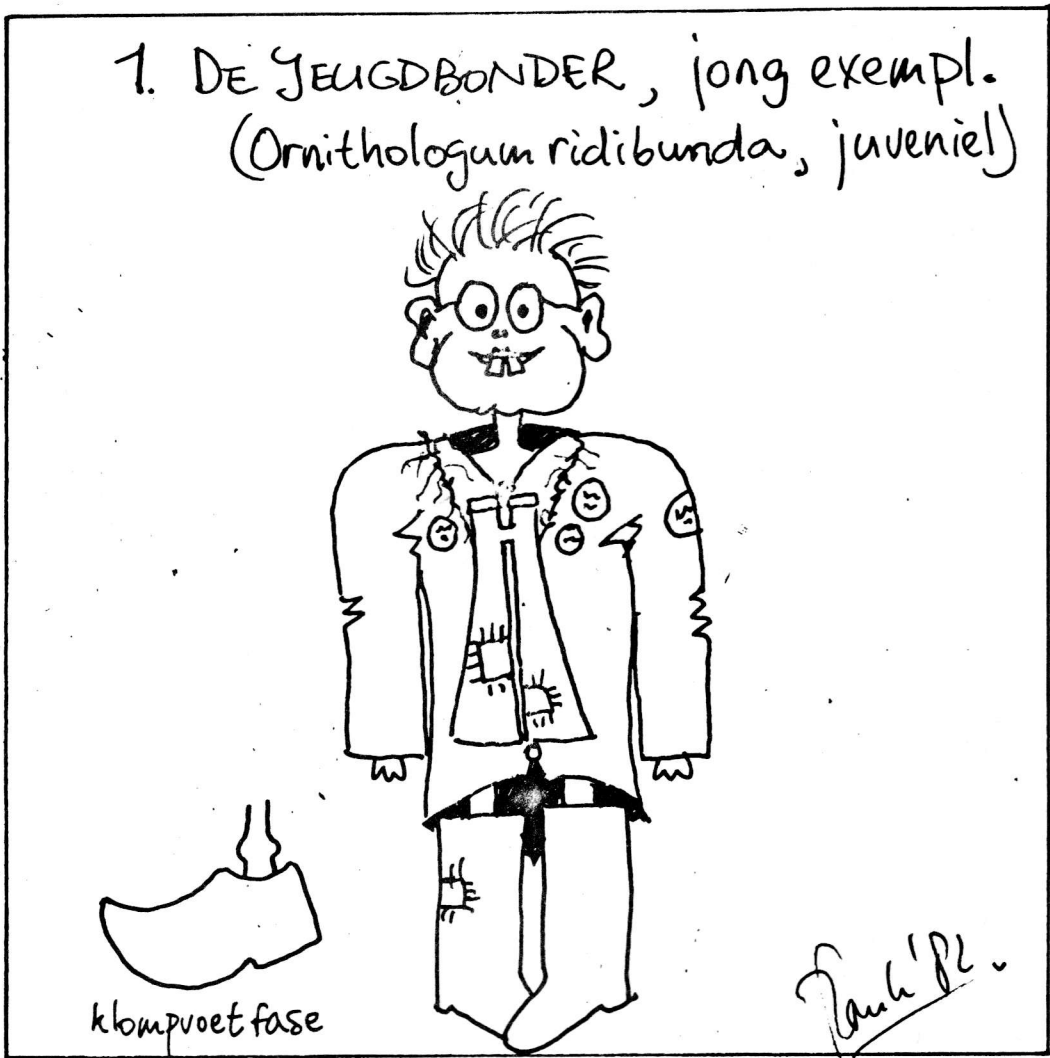 1. DE JEUGDBONDER, jong exempl.
(Ornithologum ridibunda, juveniel)
klompvoetfase
'82.